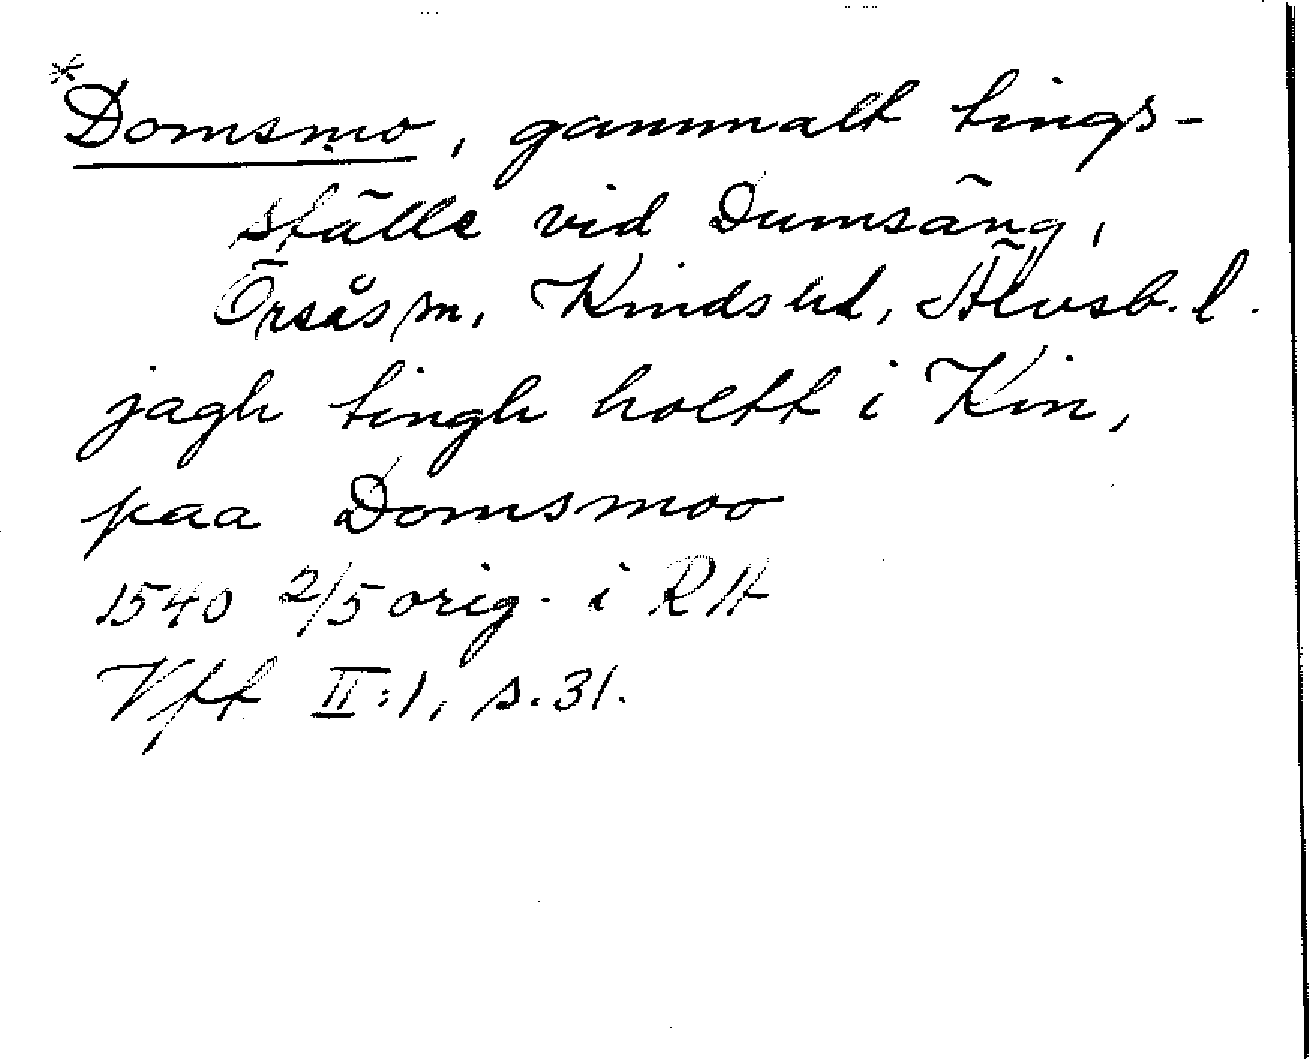 *Domsmo, gammalt tings-
ställe vid Dumsäng,
Örsås sn, Kinds hd, Älvsb. l.
jagh tingh holtt i Kin,
paa Domsmoo
1540 2/5 orig. i RA
Vff II:1, s. 31.